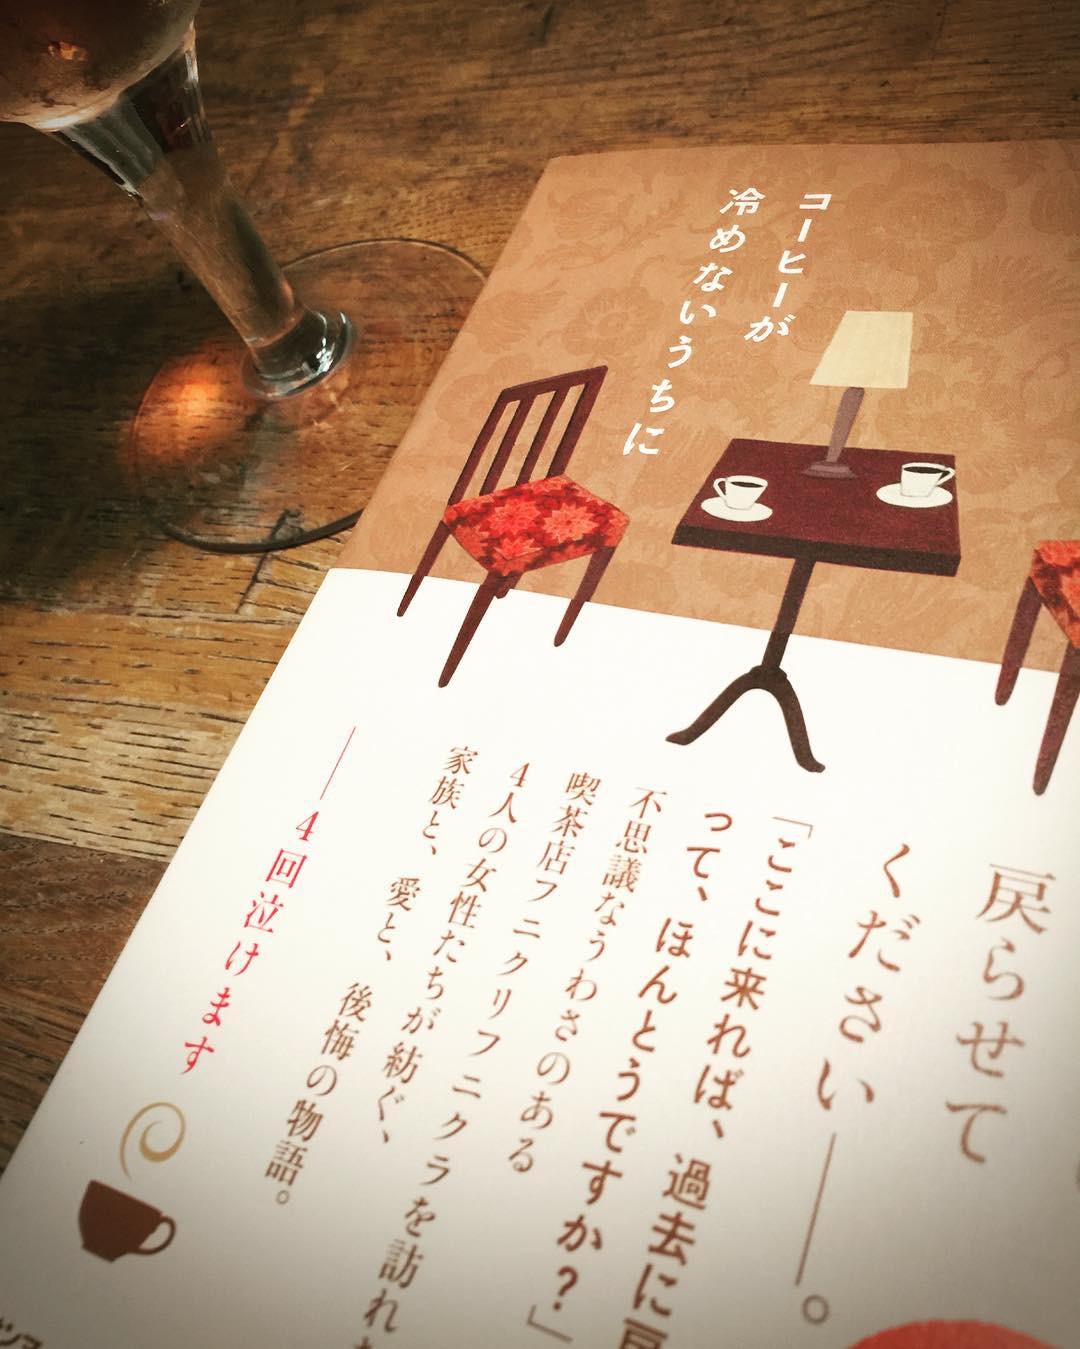 コーヒーが
冷めないうちに
戻らせて
ください――。
「ここに来れば、過去に戻
って、ほんとうですか？」
不思議なうわさのある
喫茶店フニクリフニクラを訪れ
4人の女性たちが紡ぐ、
家族と、愛と、後悔の物語。
――4回泣けます